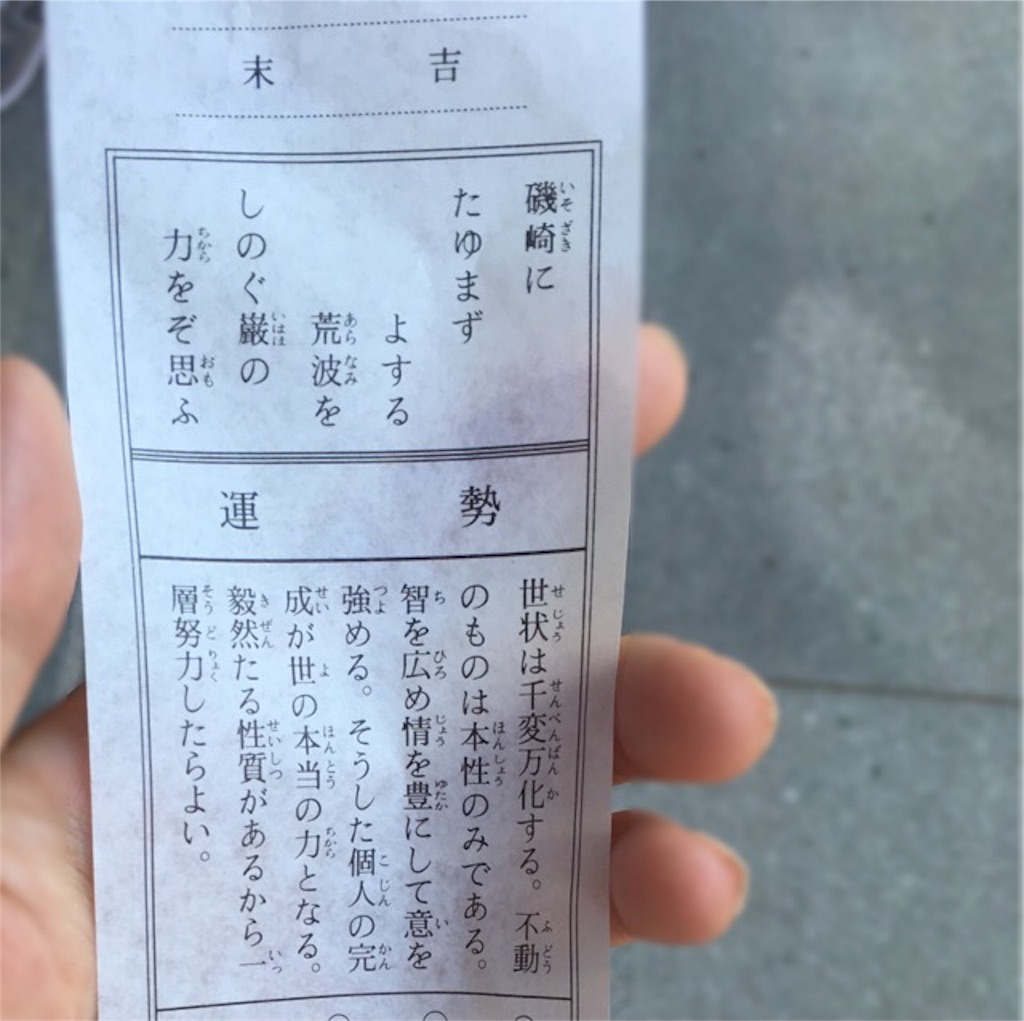 末 吉
磯崎に
たゆまず
よする
荒波を
しのぐ巌の
力をぞ思ふ
運 勢
世状は千変万化する。不動
のものは本性のみである。
智を広め情を豊にして意を
強める。そうした個人の完
成が世の本当の力となる。
毅然たる性質があるから一
層努力したらよい。